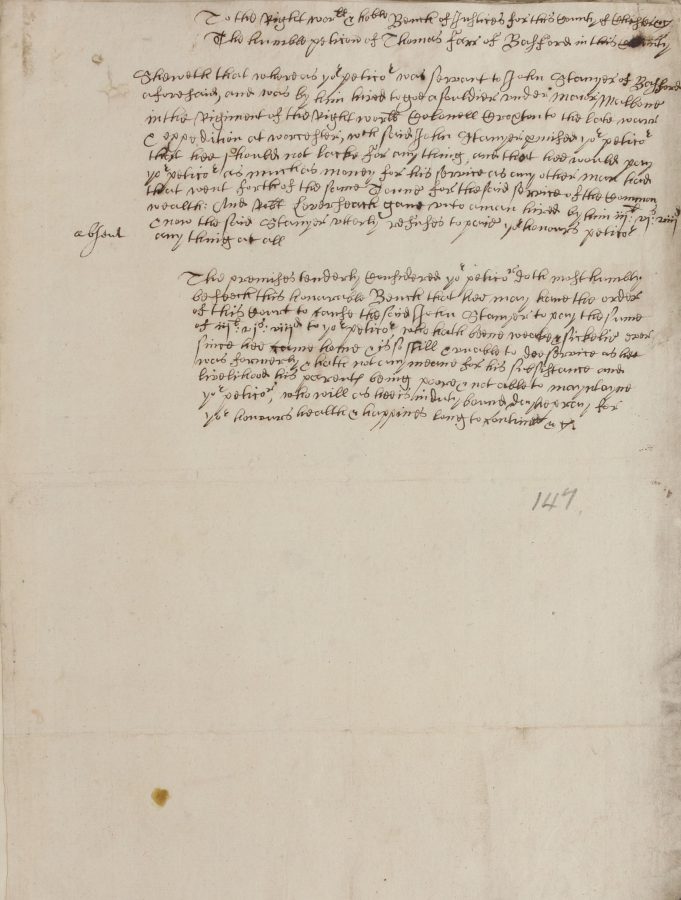 To the Right wor:ll & hoble Bench of Justices for this County of Chester
The humble peticon of Thomas Farr of Basford in this County
Sheweth that whereas yor peticor was servant to John Stanyer of Basford
aforesaid, and was by him hired to goe a souldier under Maior Malbone
in the Regiment of the Right worll Colonell Croxton to the late warr
& expedition at worcester, wch said John Stanyer promised yor peticor
that hee should not lacke for any thing, and that hee would pay
yor peticor as much as money for his service as any other man had
that went forth of the same Towne for the said service of the Common
wealth: And gave unto a man hired by him iiili: vis: viiid
absent
& now the said Stanyer utterly refuses to paie yor honours peticor
any thing at all
The premisses tenderly Considered yor peticor doth most humbly
beseech this honorable Bench that hee may have the order
of this Court to cause the said John Stanyer to pay the sume
of iiili: vis: viiid to yor peticor who hath beene weake & sickelie ever
since hee came home & is so still & unable to doe service as hee
was formerly & hath not any meane for his subsistance and
livelihood his parents being poore & not able to mayntayne
yor peticor, who will as hee is in duty bound daylie pray for
yor honours health & happines long to continue &c
147